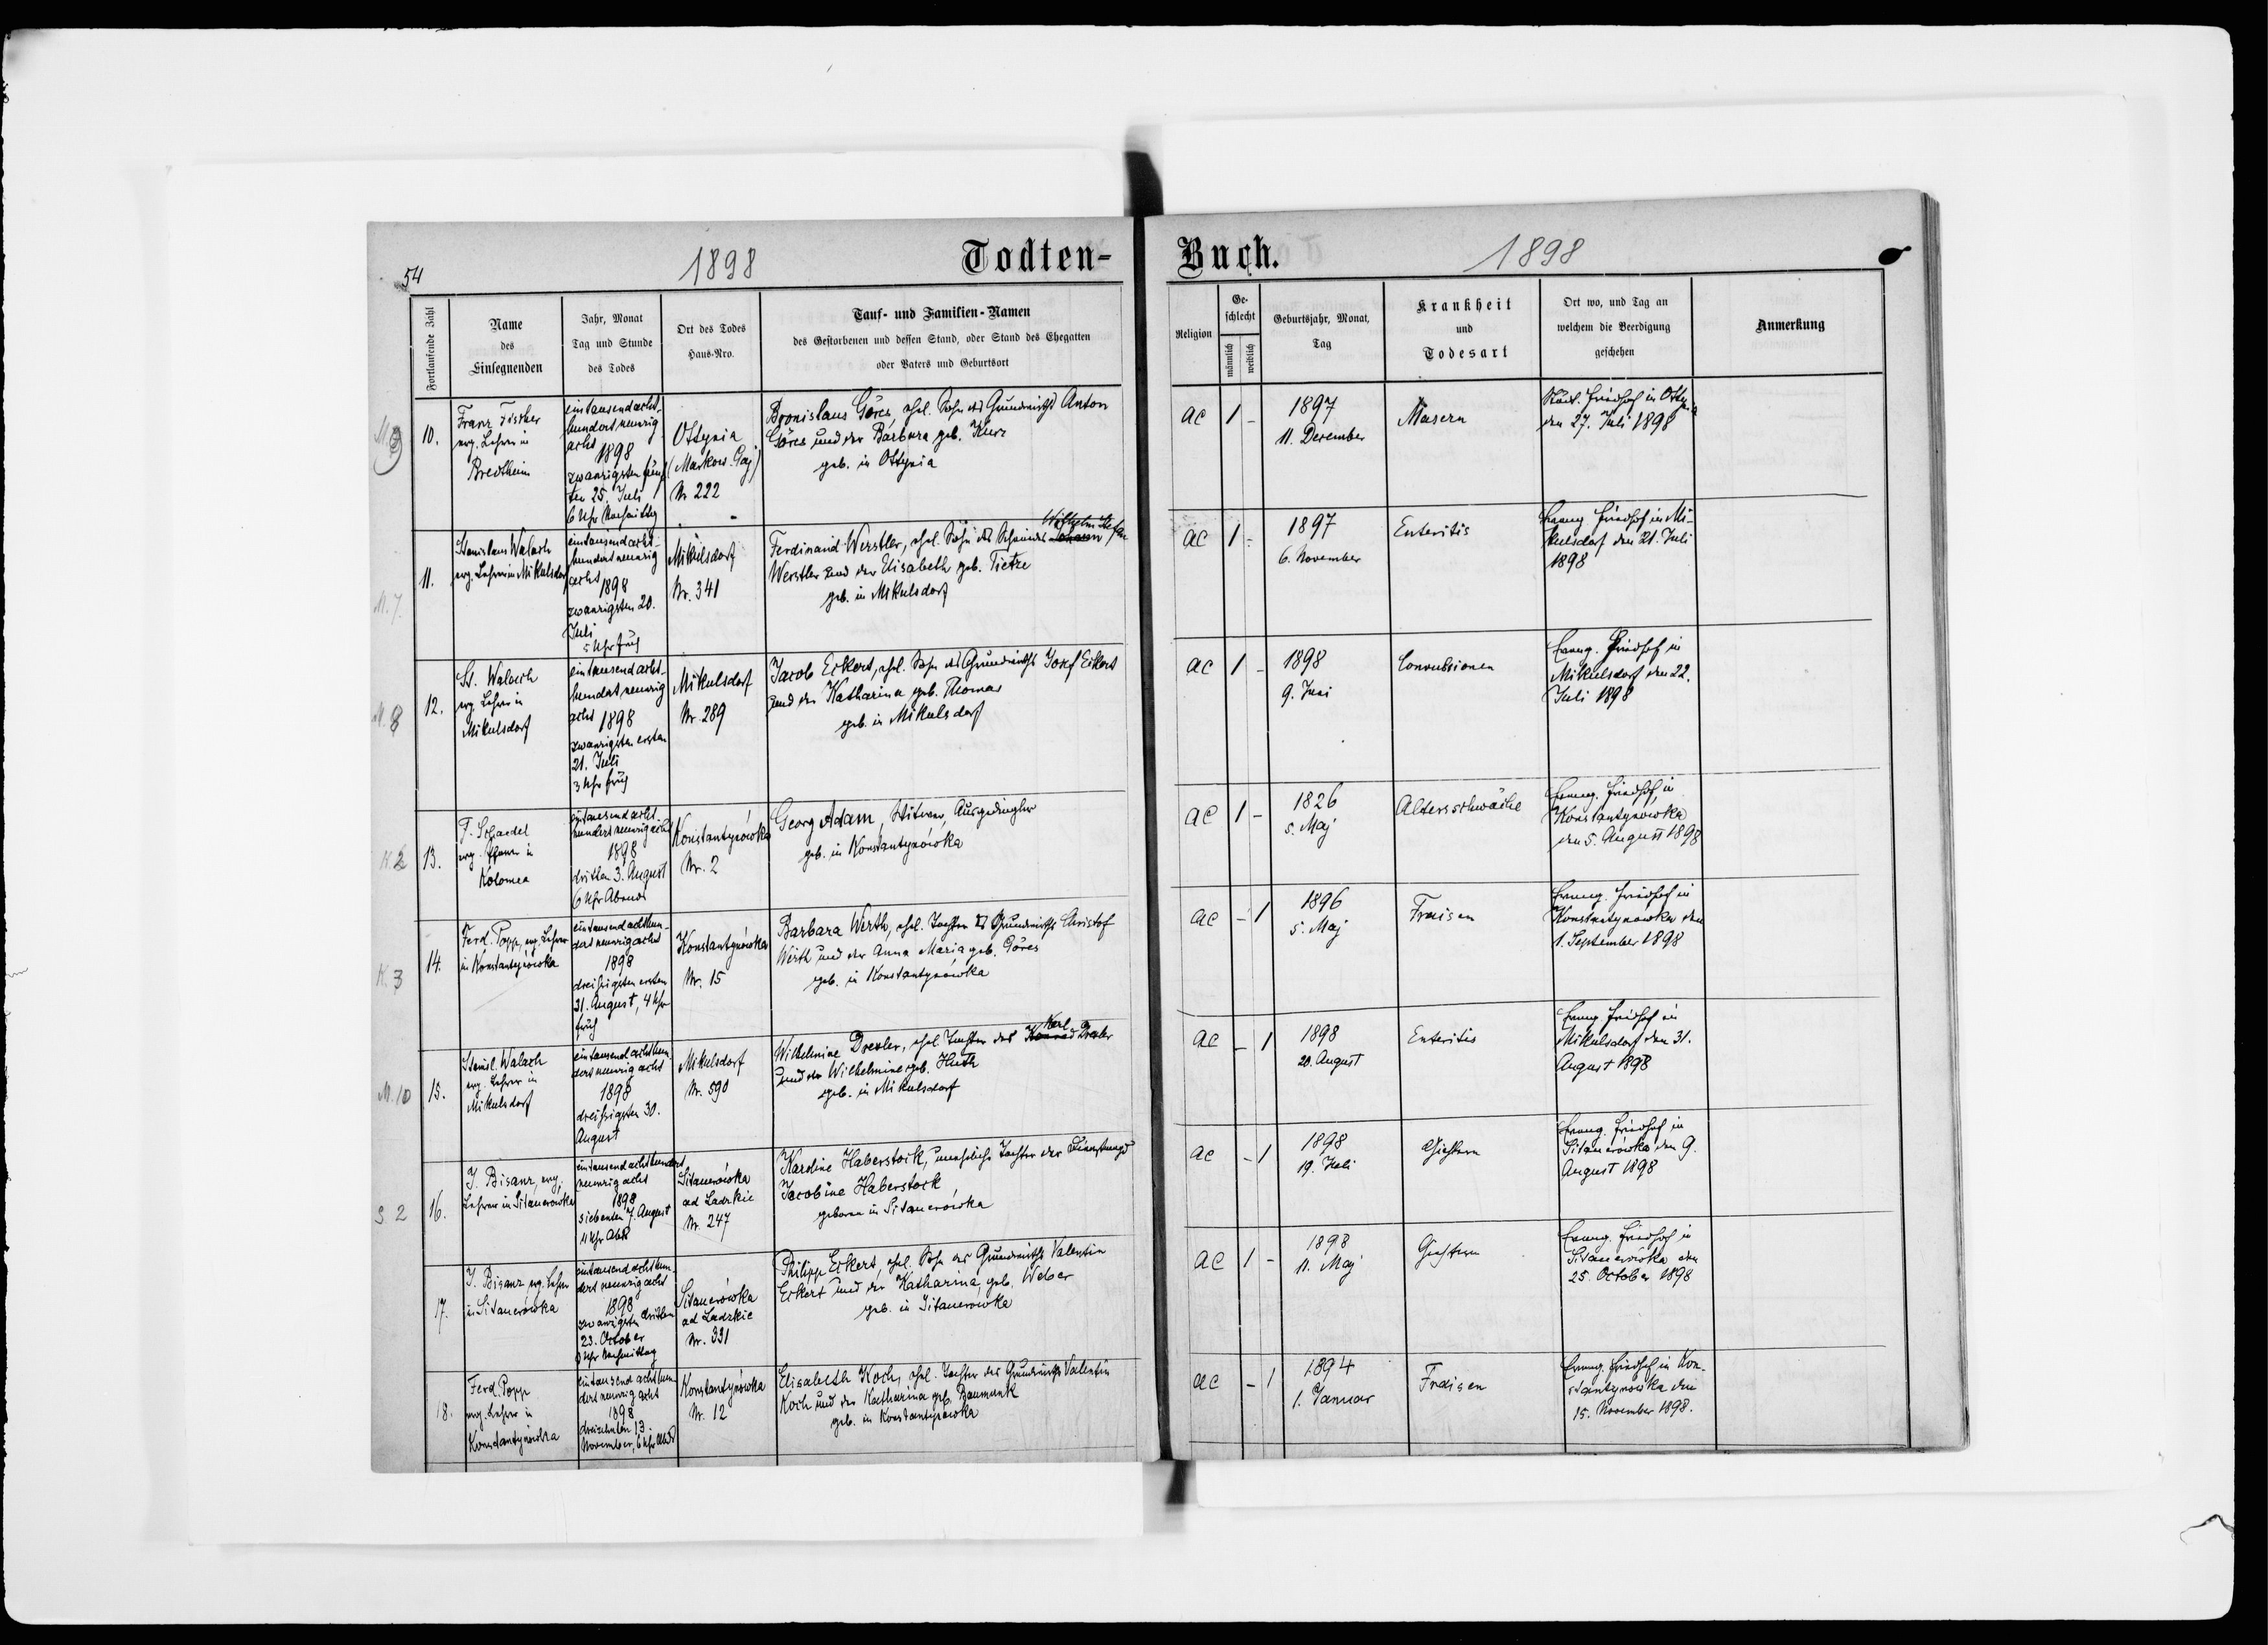 54
1898
Todten-
Buch.
1898
Fortlaufende Zahl
Name
des
Einsegnenden
Jahr, Monat
Tag und Stunde
des Todes
Ort des Todes
Haus-Nro.
Tauf- und Familien-Namen
des Gestorbenen und dessen Stand, oder Stand des Ehegatten
oder Vaters und Geburtsort
Religion
Ge-
schlecht
männlich
weiblich
Geburtsjahr, Monat,
Tag
Krankheit
und
Todesart
Ort wo, und Tag an
welchem die Beerdigung
geschehen
Anmerkung
10.
Franz Fischer
evg. Lehrer in
Bredtheim
eintausendacht-
hundertneunzig
acht
1898
zwanzigsten fünf
ten 25. Juli
6 Uhr Nachmittag
Ottynia
(Markow. Gaj)
Nr 222
Bronislaus Göres, ehel. Sohn des Grundwirths Anton
Göres und der Barbara geb. Kurz
geb. in Ottynia
ac
1 -
1897
11. Dezember
Masern
Friedhof in Ottynia
den 27. Juli 1898
M. 7.
11.
Stanislaus Walach
evg. Lehrer in Mikulsdorf
eintausendacht-
hundertneunzig
acht
1898
zwanzigsten 20.
Juli
5 Uhr früh
Mikulsdorf
Nr. 341
Wilhelm Stefan
Ferdinand Werstler, ehel. Sohn des Johann
Werstler und der Elisabeth geb. Tietze
geb. in Mikulsdorf
ac
1 -
1897
6. November
Enteritis
Evang. Friedhof in Mi-
kulsdorf den 21. Juli
1898
M. 8
12.
St. Walach
evg. Lehrer in
Mikulsdorf
eintausendacht-
hundertneunzig
acht 1898
zwanzigsten ersten
21. Juli
3 Uhr früh
Mikulsdorf
Nr. 289
Jacob Eckert, ehel. Sohn des Grundwirths Josef Eckert
und der Katharina geb. Thomas
geb. in Mikulsdorf
ac
1 -
1898
9. Juni
Convulsionen
Evang. Friedhof in
Mikulsdorf den 22.
Juli 1898
K. 2
13.
evg. Pfarrer in
Kolomea
eintausendacht-
hundertneunzigacht
1898
dritten 3. August
6 Uhr Abends
Konstantynówka
Nr. 2
Georg Adam, Witwer, Ausgedingler
geb. in Konstantynówka
ac
1 -
1826
5. Maj
Altersschwäche
Evang. Friedhof in
Konstantynówka
den 5. August 1898
K. 3
14.
Ferd. Popp, evg. Lehrer
in Konstantynówka
eintausendachthun-
dertneunzigacht
1898
dreißigsten ersten
31. August, 4 Uhr
früh
Konstantynówka
Nr. 15
Barbara Werth, ehel. Tochter des Grundwirths Christof
Werth und der Anna Maria geb. Göres
geb. in Konstantynówka
ac
- 1
1896
5. Maj
Fraisen
Evang. Friedhof in
Konstantynowka den
1. September 1898
M. 10
15.
Stanisl. Walach
evg. Lehrer in
Mikulsdorf
eintausendachthun-
dertneunzigacht
1898
dreißigsten 30.
August
Mikulsdorf
Nr. 590
Karl
Wilhelmine Drexler, ehel. Tochter des Konrad Drexler
und der Wilhelmine geb. Huth
geb. in Mikulsdorf
ac
- 1
1898
20. August
Enteritis
Evang. Friedhof in
Mikulsdorf den 31.
August 1898
S 2
16.
J. Bisanz, evg.
Lehrer in Sitauerówka
eintausendachthundert
neunzigacht
1898
siebenten 7. August
11 Uhr
Sitauerówka
ad Ladzkie
Nr. 247
Karoline Haberstock, uneheliche Tochter der Dienstmagd
Jacobine Haberstock
geboren in Sitauerówka
ac
- 1
1898
19. Juli
Gichtern
Evang. Friedhof in
Sitauerówka den 9.
August 1898
17.
J. Bisanz evg. Lehrer
in Sitauerówka
eintausendachthun-
dertneunzigacht
1898
zwanzigsten dritten
23. October
Uhr Nachmittag
Sitauerówka
ad Ladzkie
Nr. 331
Philipp Eckert, ehel. Sohn des Grundwirths Valentin
Eckert und der Katharina geb. Weber
geb. in Sitauerówka
ac
1 -
1898
11. Maj
Gichtern
Evang. Friedhof in
Sitauerówka den
25. October 1898
18.
Ferd. Popp
evg. Lehrer in
Konstantynówka
eintausendachthun-
dertneunzigacht
1898
dreizehnten 13.
November, 6 Uhr
Konstantynówka
Nr. 12
Elisabeth Koch, ehel. Tochter des Grundwirths Valentin
Koch und der Katharina geb. Baumunk
geb. in Konstantynówka
ac
- 1
1894
1. Januar
Fraisen
Evang. Friedhof in Kon-
stantynowka den
15. November 1898.